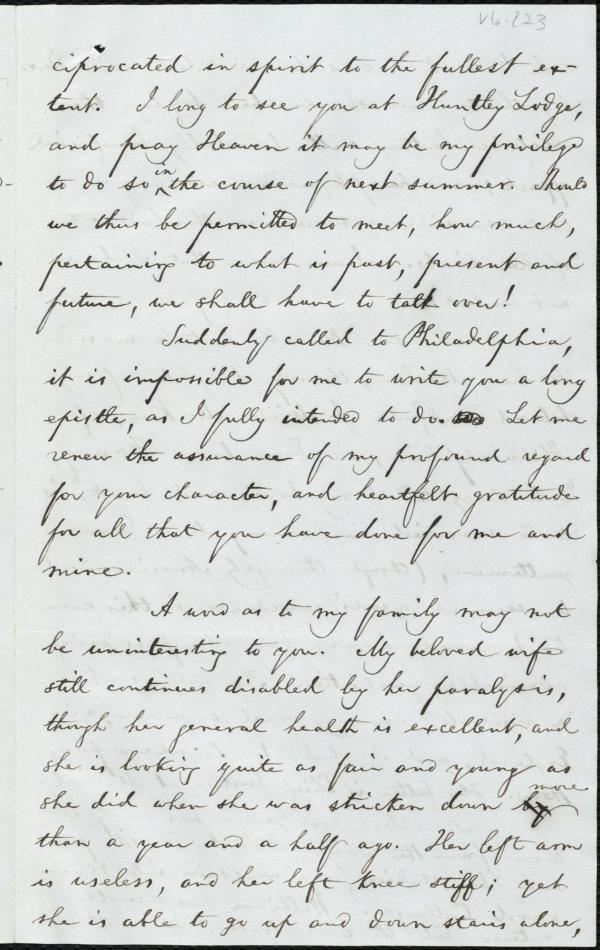 V6.223
ciprocated in spirit to the fullest ex-
tent. I long to see you at Huntley Lodge,
and pray Heaven it may be my privilege
to do so in the course of next summer. Should
we thus be permitted to meet, how much,
pertaining to what is past, present and
future, we shall have to talk over!
Suddenly called to Philadelphia,
it is impossible for me to write you a long
epistle, as I fully intended to do. Let me
renew the assurance of my profound regard
for your character, and heartfelt gratitude
for all that you have done for me and
mine.
A word as to my family may not
be uninteresting to you. My beloved wife
still continues disabled by her paralysis,
though her general health is excellent, and
she is looking quite as fair and young as
she did when she was stricken down more
than a year and a half ago. Her left arm
is useless, and her left knee stiff; yet
she is able to go up and down stairs alone,